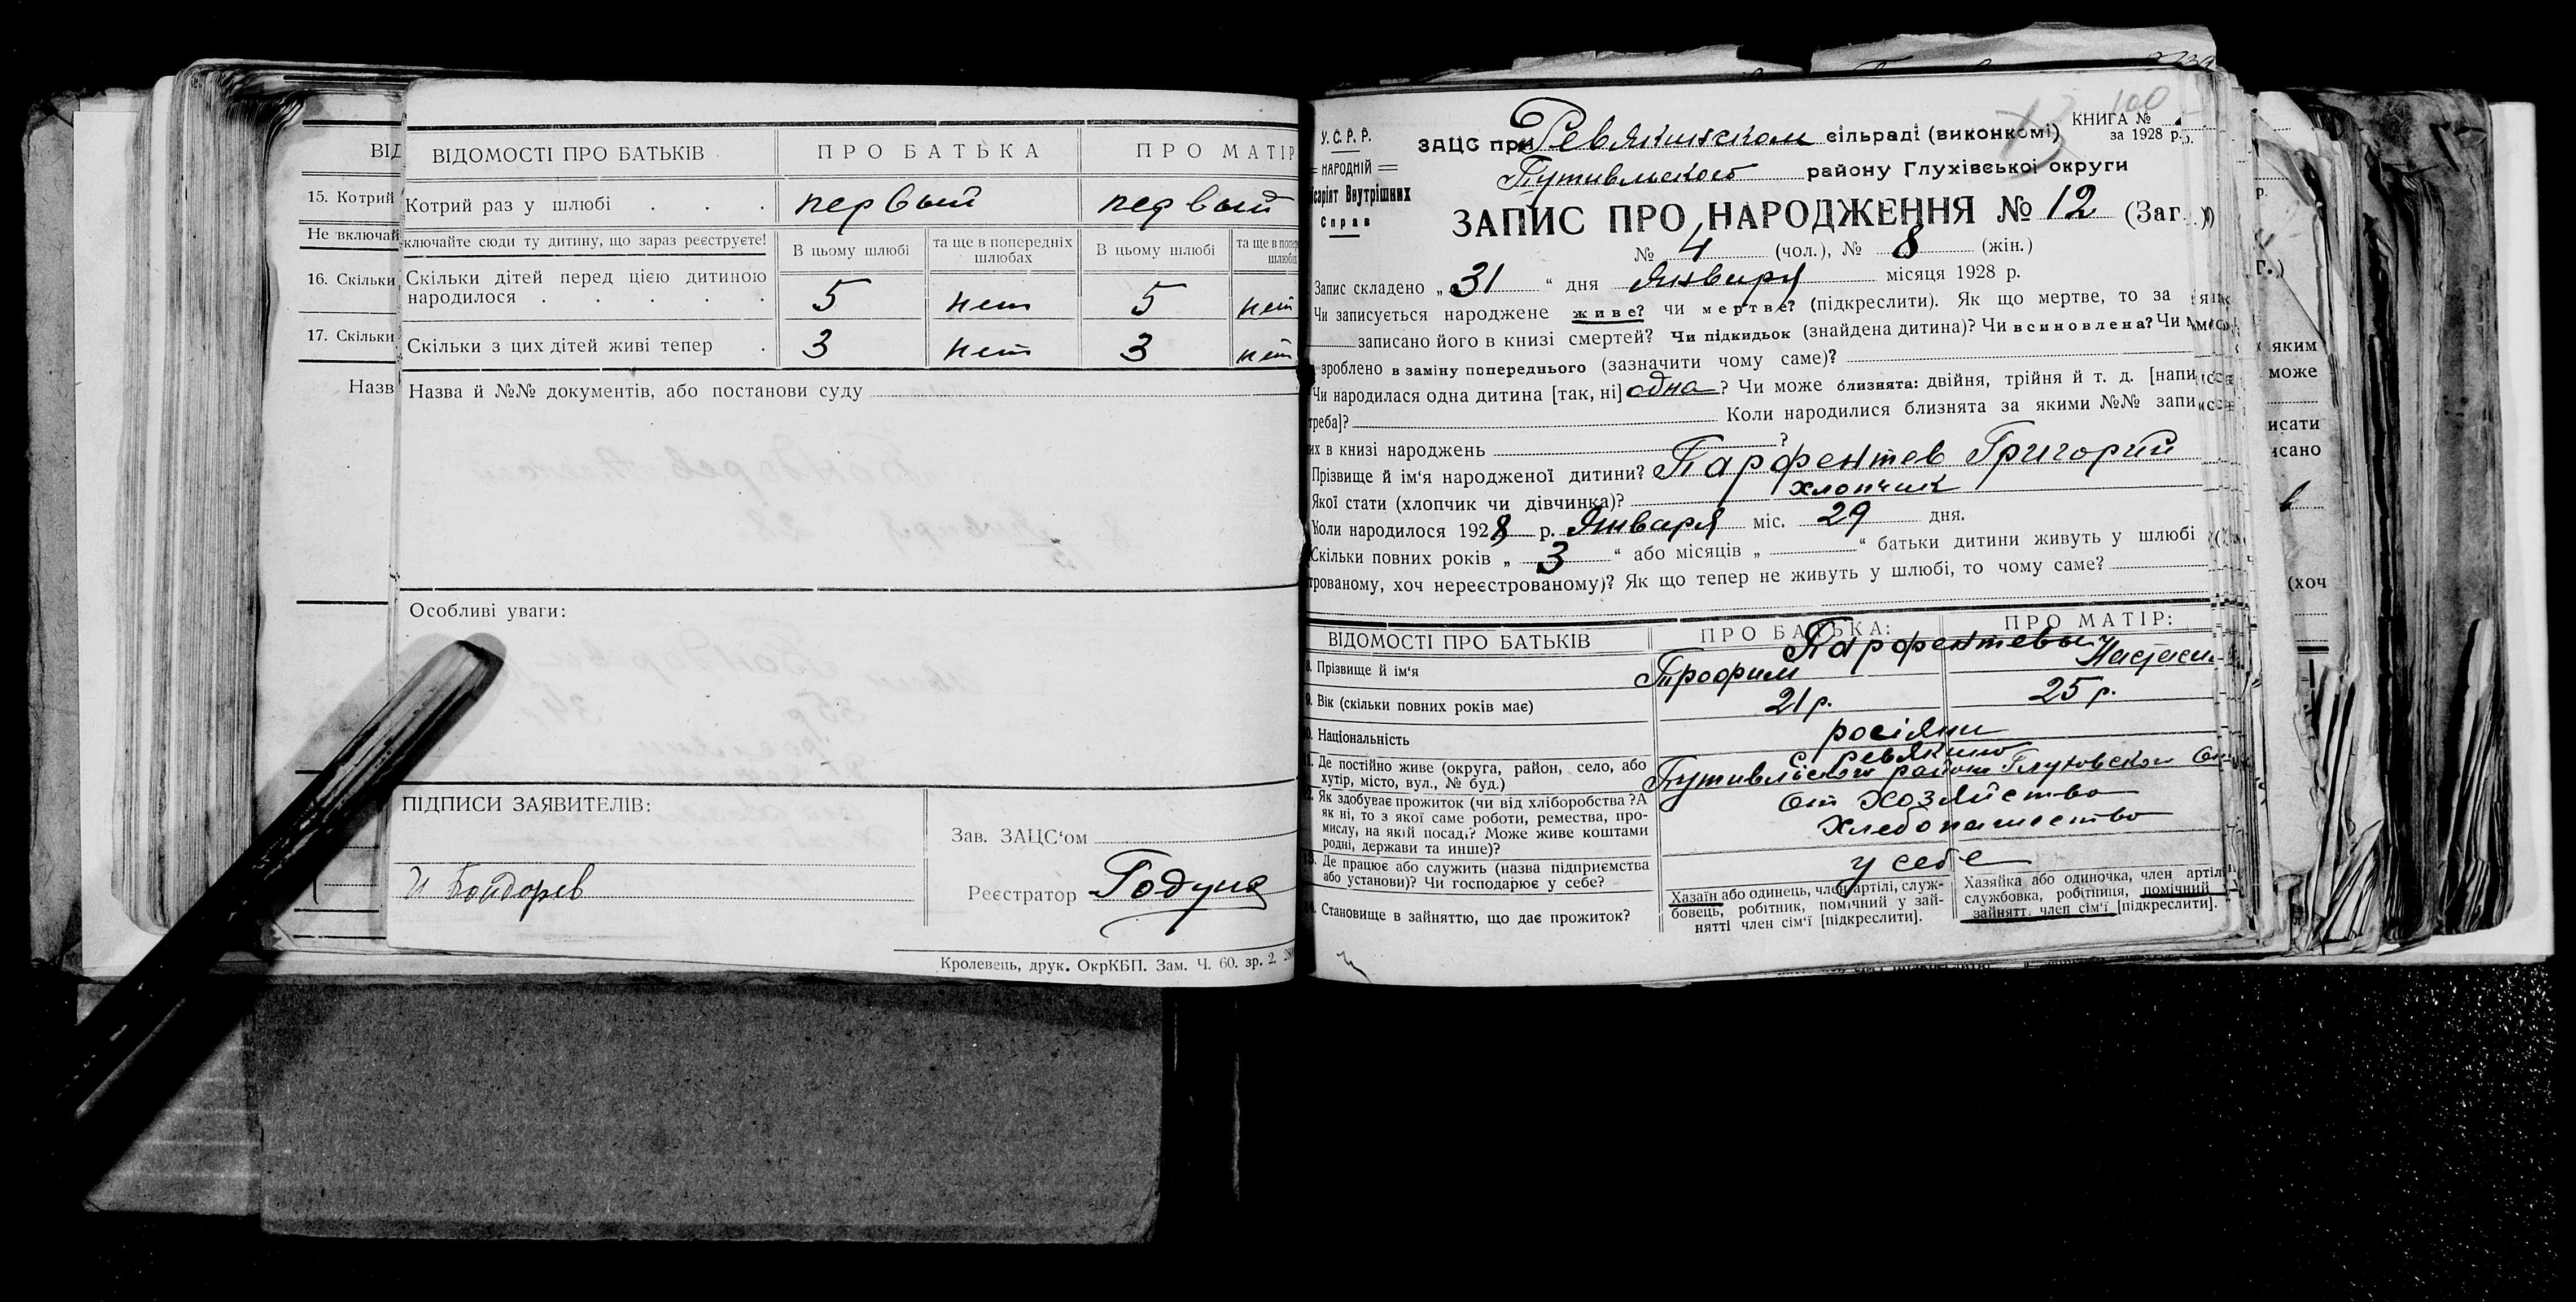 ВІДОМОСТІ ПРО БАТЬКІВ
ПРО БАТЬКА
ПРО МАТІР
15. Котрий
Котрий раз у шлюбі . . .
первый
первый
Не включай
ключайте сюди ту дитину, що зараз реєструєте!
В цьому шлюбі
та ще в попередніх шлюбах
В цьому шлюбі
16. Скільки
Скільки дітей перед цією дитиною
народилося . . . . .
5
нет
5
нет
17. Скільки
Скільки з цих дітей живі тепер .
3
нет
3
нет
Назв
Назва й №№ документів, або постанови суду
Особливі уваги:
ПІДПИСИ ЗАЯВИТЕЛІВ:
Зав. ЗАЦС'ом
Реєстратор Годуня
И Бондорев
Кролевець, друк. ОкрКБП. Зам. Ч. 60. зр. 2.
У.С.Р.Р.
НАРОДНІЙ
Внутрішних
Справ
100
КНИГА №
за 1928 р.
ЗАЦС при Ревякинском сільраді (виконкомі)
Путивльского району Глухівської округи
ЗАПИС ПРО НАРОДЖЕННЯ № 12 (Заг.)
№ 4 (чол.), № 8 (жін.)
Запис складено „31“ дня Января місяця 1928 р.
Чи записується народжене живе? чи мертве? (підкреслити). Як що мертве, то за
записано його в книзі смертей? Чи підкидьок (знайдена дитина)? Чи всиновлена? Чи
зроблено в заміну попереднього (зазначити чому саме)?
Чи народилася одна дитина [так, ні] одна? Чи може близнята: двійня, трійня й т. д. [напи
треба]? Коли народилися близнята за якими №№ запи
их в книзі народжень ?
Прізвище й ім'я народженої дитини? Парфентев Григорий
Якої стати (хлопчик чи дівчинка)? хлопчик
Коли народилося 1928 р. Января міс. 29 дня.
Скільки повних років „3“ або місяців „ “ батьки дитини живуть у шлюбі
трованому, хоч нереєстрованому)? Як що тепер не живуть у шлюбі, то чому саме?
ВІДОМОСТІ ПРО БАТЬКІВ
ПРО БАТЬКА:
ПРО МАТІР:
Парфентевы
8. Прізвище й ім'я
Трофим
Настаси
9. Вік (скільки повних років має)
21 р.
25 р.
Національність
росіяни
Де постійно живе (округа, район, село, або
хутір, місто, вул., № буд.)
с. Ревякино
Путивльского района Глуховского
Як здобуває прожиток (чи від хліборобства? А
як ні, то з якої саме роботи, ремества, про-
мислу, на якій посаді? Може живе коштами
родні, держави та инше)?
От Хозяйство
Хлебопашество
Де працює або служить (назва підприємства
або установи)? Чи господарює у себе?
у себе
Становище в зайняттю, що дає прожиток?
Хазаїн або одинець, член артілі, служ-
бовець, робітник, помічний у зай-
нятті член сім'ї [підкреслити].
Хазяйка або одиночка, член артіл
службовка, робітниця, помічний
зайнятт. член сім'ї [підкреслити].
яким
може
исати
исано
(хоч